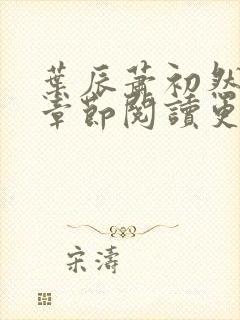 葉辰蕭初然
章節閱讀更
宋濤